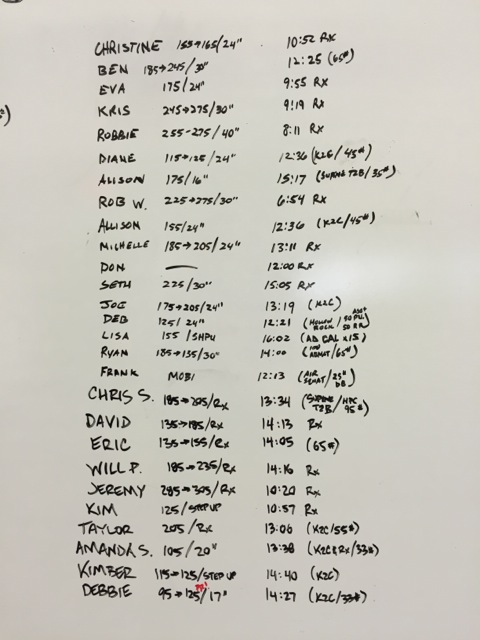 CHRISTINE 155→165/24" 10:52 Rx
BEN 185→245/30" 12:25 (65#)
EVA 175/24" 9:55 Rx
KRIS 245→275/30" 9:19 Rx
ROBBIE 255-275/40" 8:11 Rx
DIANE 115→125/24" 12:36 (K2E/45#)
ALISON 175/16" 15:17 (SUPINE T2B/35#)
ROB W. 225→275/30" 6:54 Rx
ALLISON 155/24" 12:36 (K2C/45#)
MICHELLE 185→205/24" 13:11 Rx
DON — 12:00 Rx
SETH 225/30" 15:05 Rx
JOE 175→205/24" 13:19 (K2C)
DEB 125/24" 12:21 (HOLLOW ROCK/50 RR)
LISA 155/SHPU 16:02 (AD CAL x15)
RYAN 185→135/30" 14:00 (100 ABMAT/65#)
FRANK MOBI 12:13 (AIR SQUAT/25# DB)
CHRIS S. 185→205/Rx 13:34 (SUPINE T2B/HPC 95#)
DAVID 135→185/Rx 14:13 Rx
ERIC 135→155/Rx 14:05 (65#)
WILL P. 185→235/Rx 14:16 Rx
JEREMY 285→305/Rx 10:20 Rx
KIM 125/STEP UP 10:57 Rx
TAYLOR 205/Rx 13:06 (K2C/55#)
AMANDA S. 105/20" 13:38 (K2C&Rx/33#)
KIMBER 115→125/STEP UP 14:40 (K2C)
DEBBIE 95→125/17" PR! 14:27 (K2C/33#)